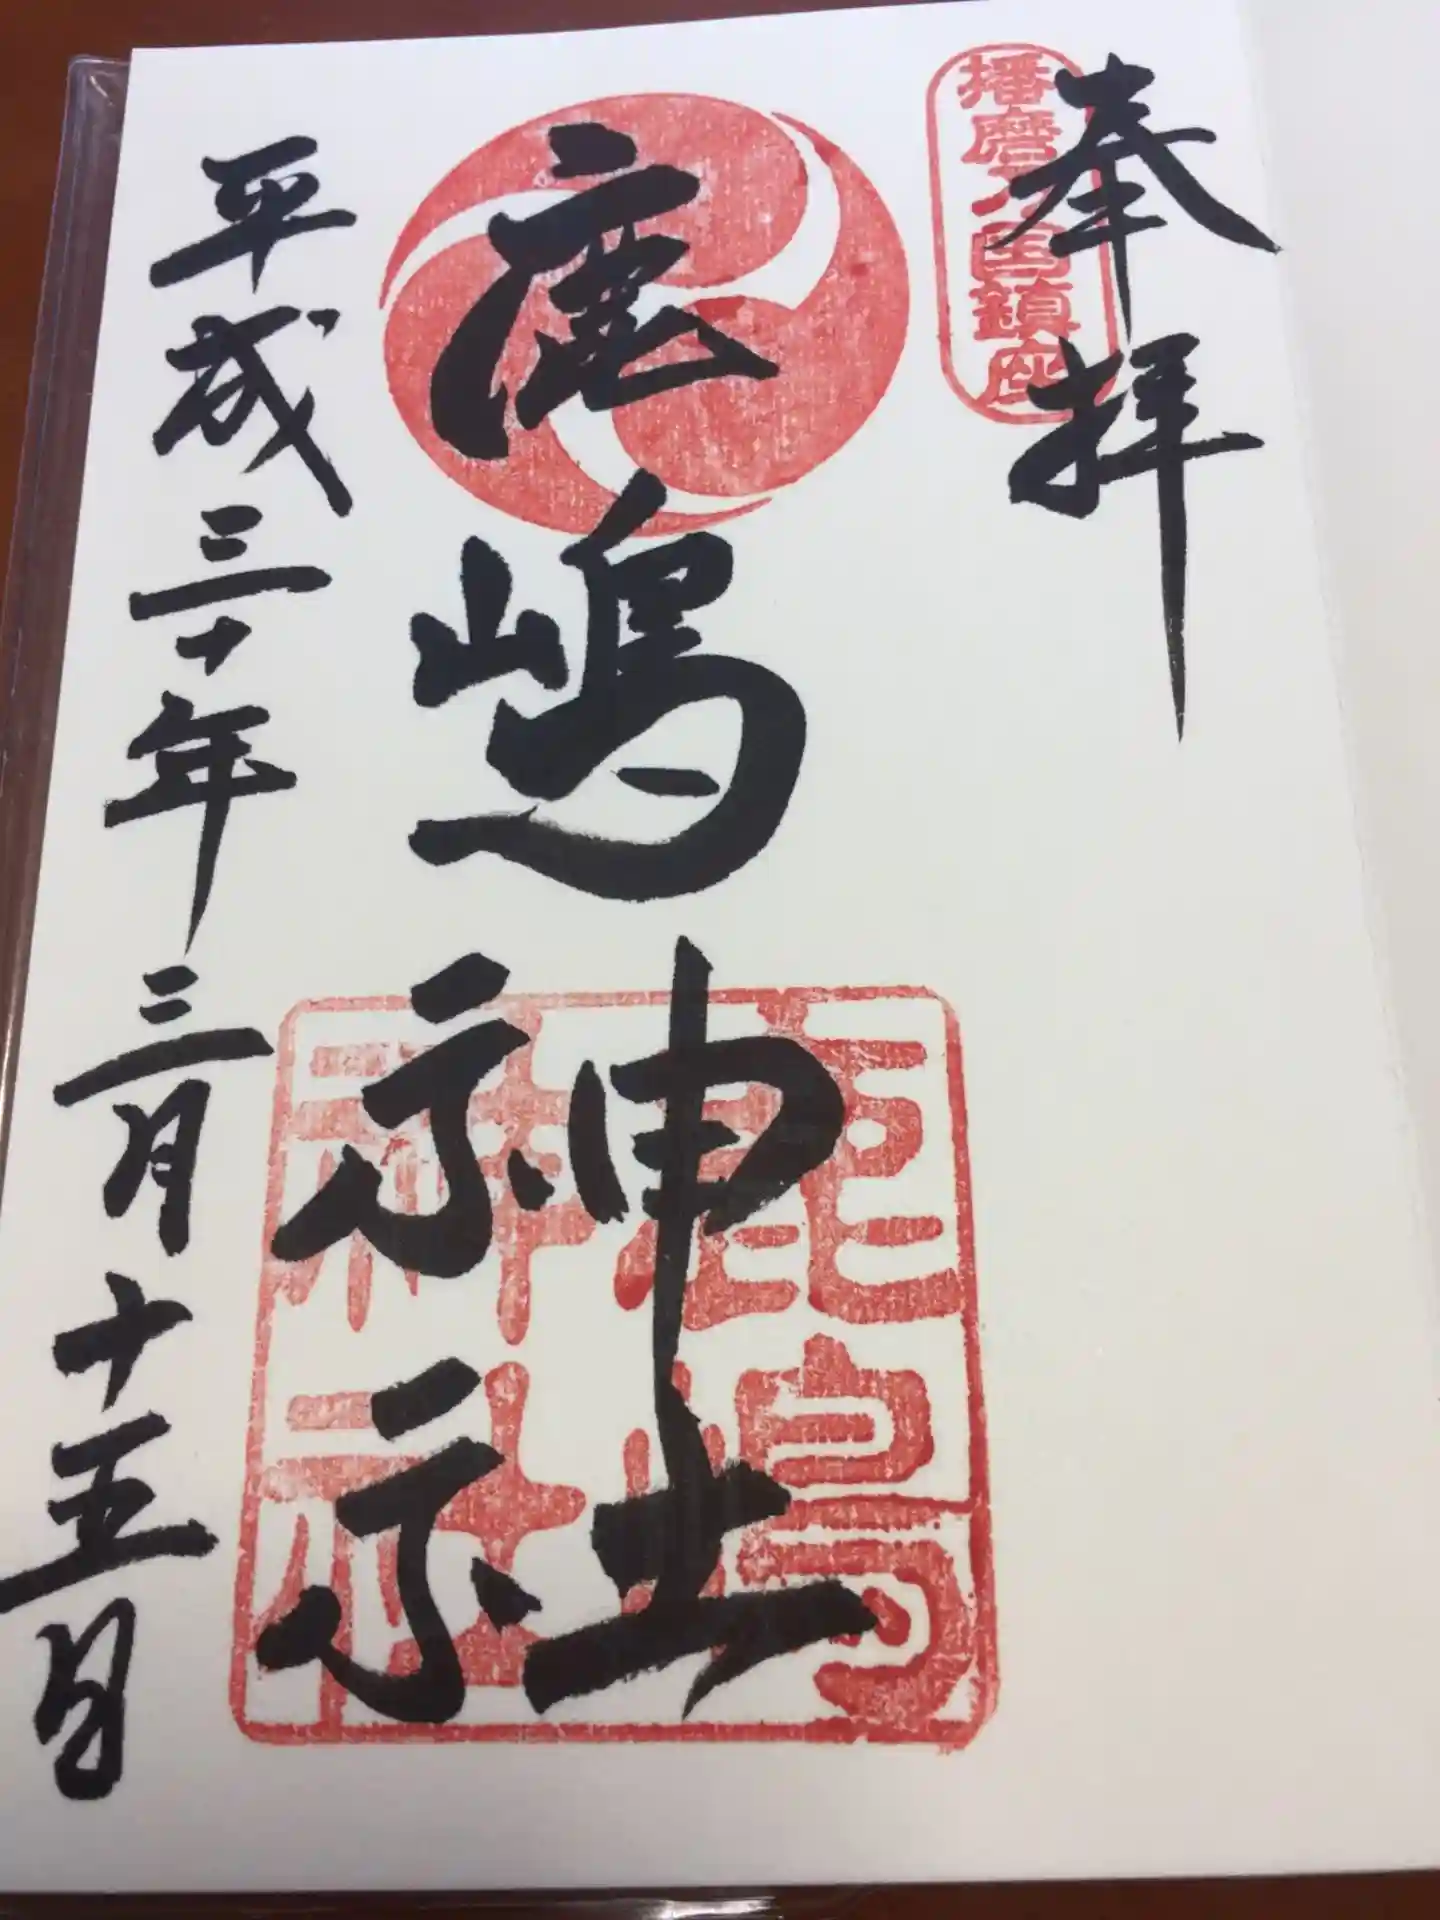 奉拝
播磨之国鎮座
鹿嶋神社
鹿嶋
神社
平成三十年三月十五日